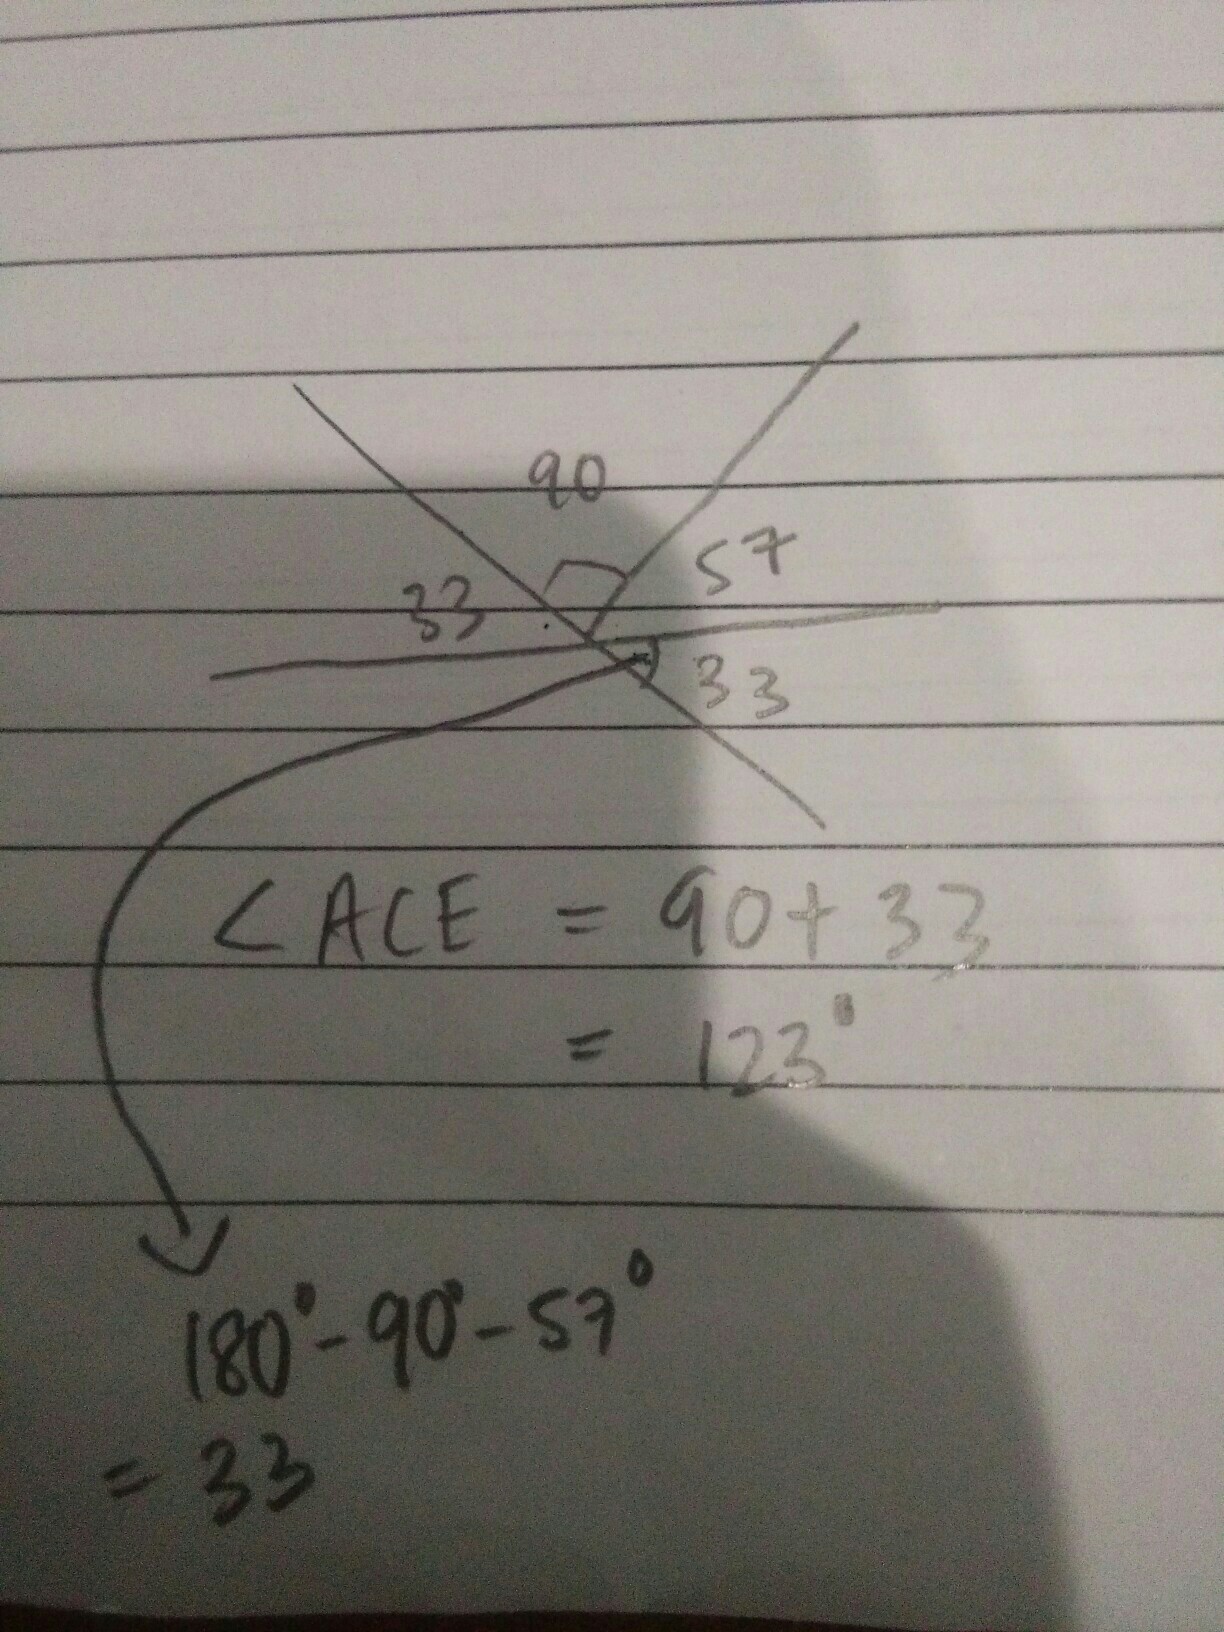 90
57
33
33
<ACE = 90+33
= 123°
180°-90°-57°
= 33